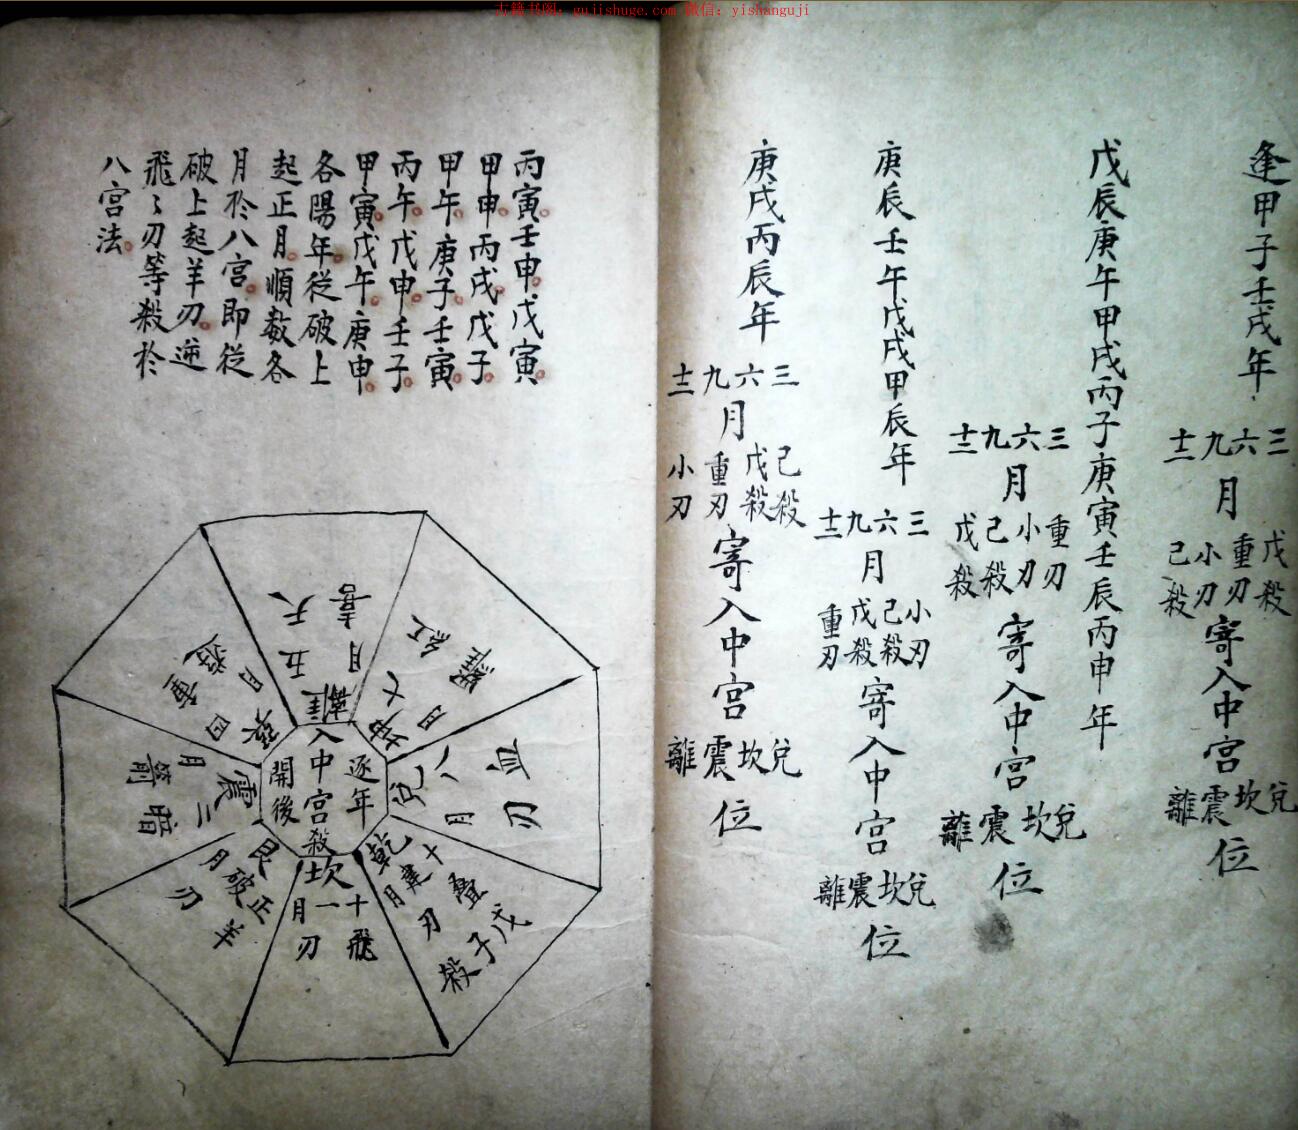 古籍书阁：gujishuge.com 微信：yishanguji
逢甲子壬戌年
三六九十二
月
戊殺 重刃 小刃 己殺
寄入中宮
兌坎震離
位
戊辰庚午甲戌丙子庚寅壬辰丙申年
三六九十二
月
重刃 小刃 己殺 戊殺
寄入中宮
兌坎震離
位
庚辰壬午戊戌甲辰年
三六九十二
月
小刃 己殺 戊殺 重刃
寄入中宮
兌坎震離
位
庚戌丙辰年
三六九十二
月
己殺 戊殺 重刃 小刃
寄入中宮
兌坎震離
位
丙寅壬申戊寅
甲申丙戌戊子
甲午庚子壬寅
丙午戊申壬子
甲寅戊午庚申
各陽年從破上
起正月順数各
月於八宮即從
破上起羊刃逆
飛〻刃等殺於
八宮法
逐年
入中宮殺
開後
離
五月
天喜
坤
七月
紅
兌
八月
血刃
乾
十月
建
疊刃
戊子殺
坎
十一月
飛刃
艮
正月
破
羊刃
震
二月
暗箭
巽
四月
重